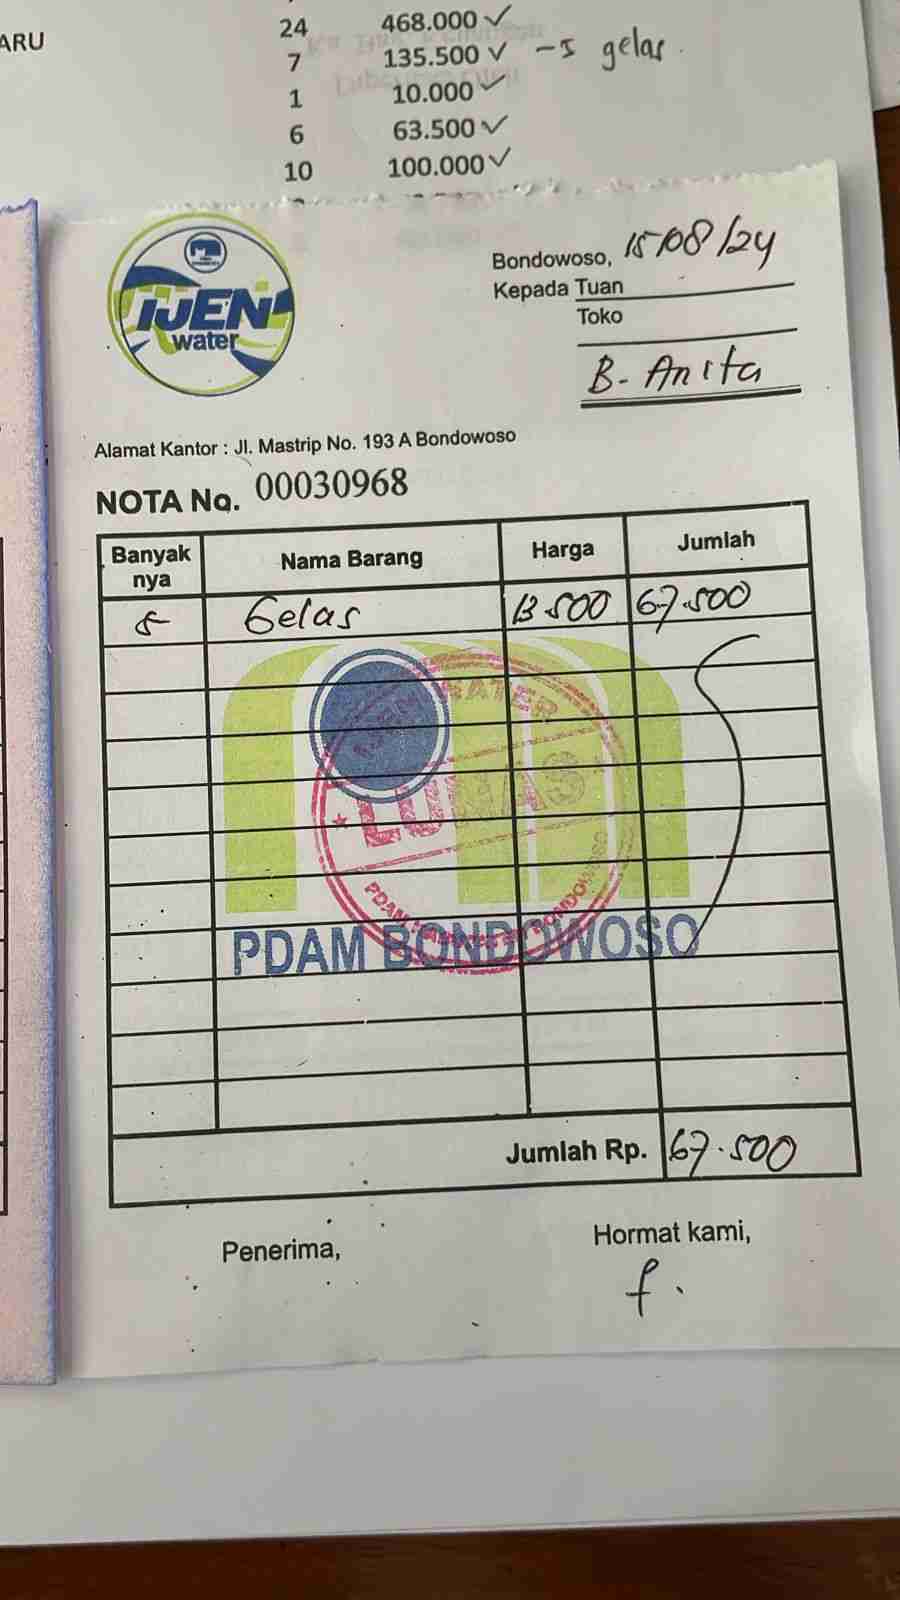 ARU
24 468.000 ✓
7 135.500 ✓ -5 gelas.
1 10.000 ✓
6 63.500 ✓
10 100.000 ✓
IJEN
water
Bondowoso, 15/08/24
Kepada Tuan
Toko
B. Anita
Alamat Kantor : Jl. Mastrip No. 193 A Bondowoso
NOTA No. 00030968
Banyak nya Nama Barang Harga Jumlah
5 Gelas 13.500 67.500
IJEN WATER
LUNAS
BONDOWOSO
PDAM BONDOWOSO
Jumlah Rp. 67.500
Penerima, Hormat kami,
f.